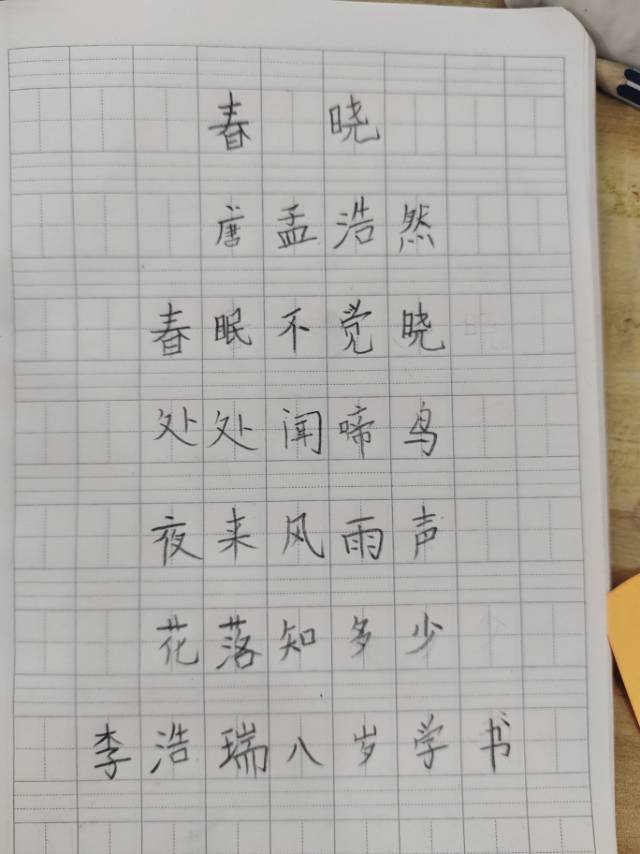 春晓
唐孟浩然
春眠不觉晓
处处闻啼鸟
夜来风雨声
花落知多少
李浩瑞八岁学书